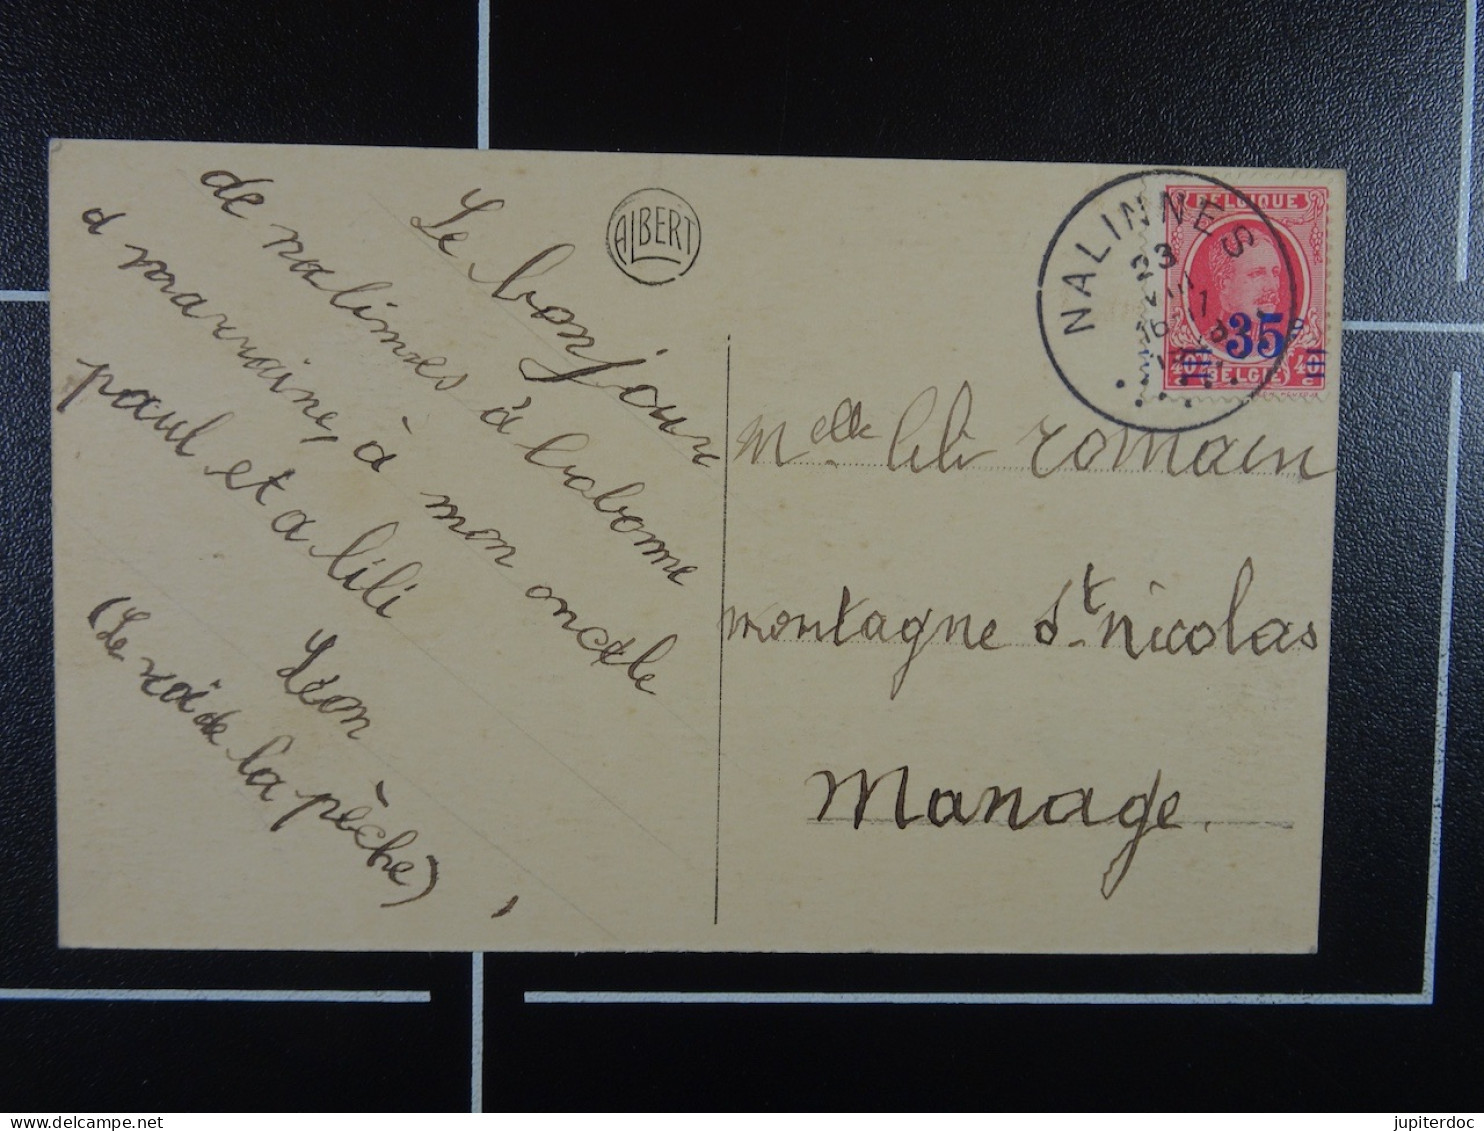 Le bonjour
de nalinnes à babonne
a marraine, à mon oncle
paul et a lili
Léon
(Le roi de la pêche)
ALBERT
NALINNES
23
BELGIQUE
35c
BELGIË
Melle lili romain
montagne St nicolas
Manage.
jupiterdoc